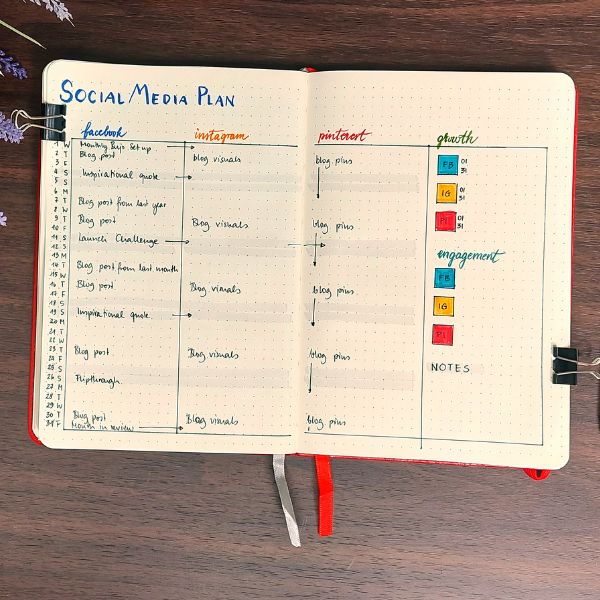 SOCIAL MEDIA PLAN
facebook
instagram
pinterest
growth
1 W Monthly Bujo Setup
2 T Blog post
3 F
4 S Inspirational quote
5 S
6 M
7 T Blog post from last year
8 W
9 T Blog post
10 F
11 S Launch Challenge
12 S
13 M
14 T Blog post from last month
15 W
16 T Blog post
17 F
18 S
19 S Inspirational quote
20 M
21 T
22 W
23 T Blog post
24 F
25 S
26 S Flipthrough
27 M
28 T
29 W
30 T Blog post
31 F Month in review
blog visuals
Blog visuals
Blog visuals
Blog visuals
Blog visuals
blog pins
blog pins
blog pins
blog pins
blog pins
FB 01
31
IG 01
31
PI 01
31
engagement
FB
IG
PI
NOTES